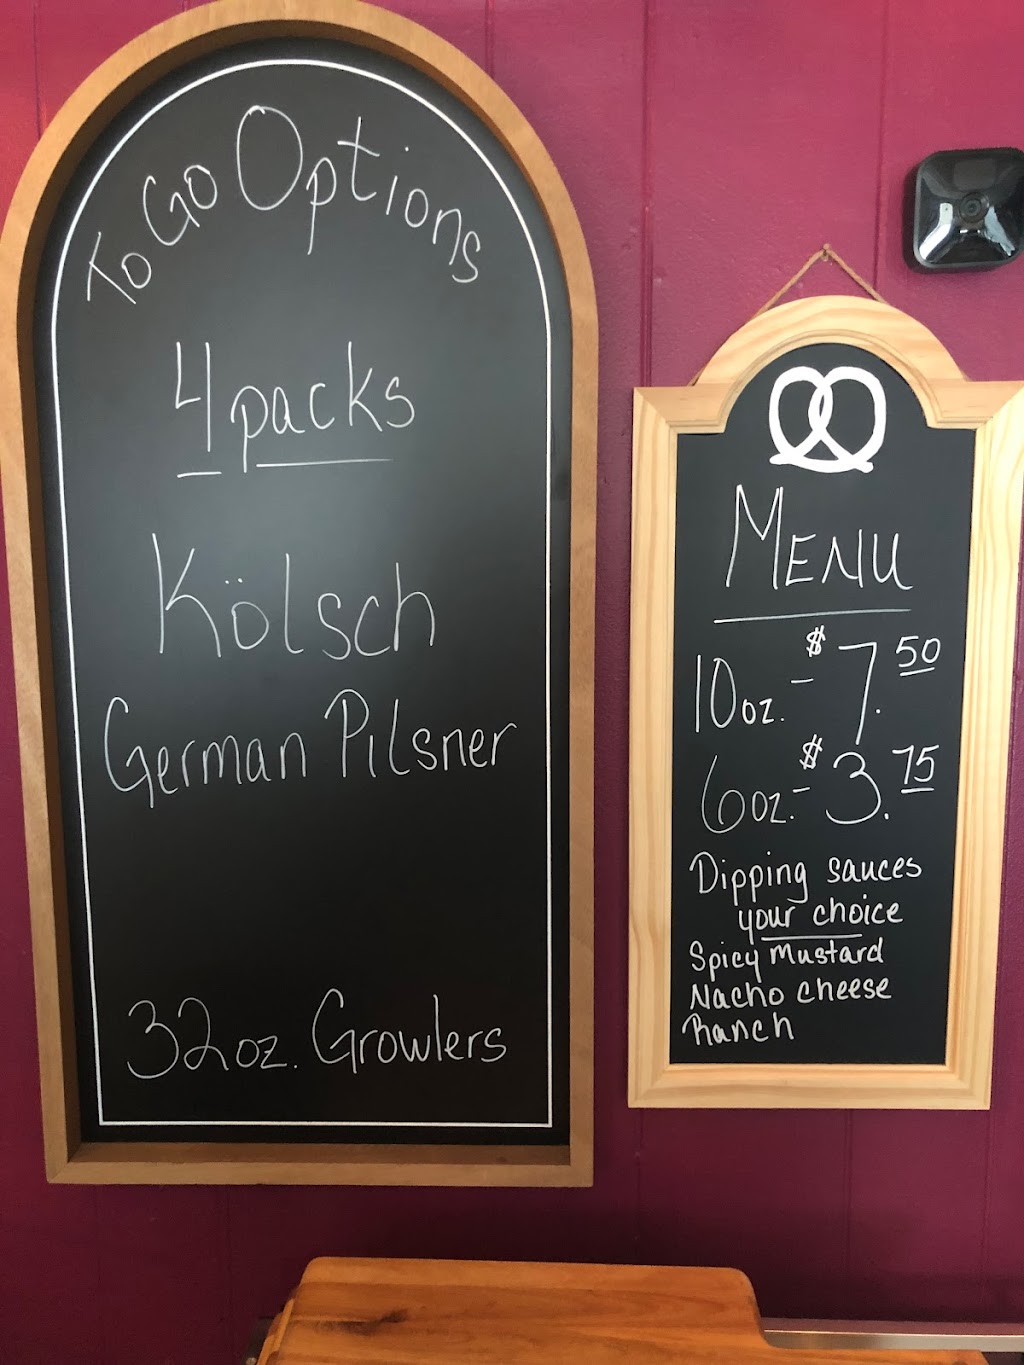 To Go Options
4 packs
Kölsch
German Pilsner
32oz. Growlers
MENU
10oz. - $7.50
6oz. - $3.75
Dipping sauces
your choice
Spicy Mustard
Nacho cheese
Ranch